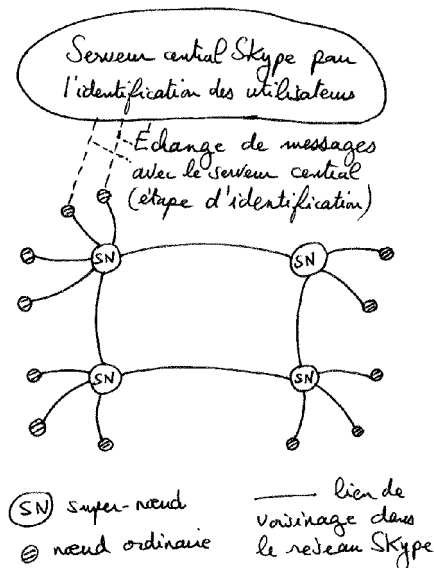 Serveur central Skype pour
l'identification des utilisateurs
Échange de messages
avec le serveur central
(étape d'identification)
SN
SN
SN
SN
SN super-nœud
nœud ordinaire
lien de
voisinage dans
le reseau SKype